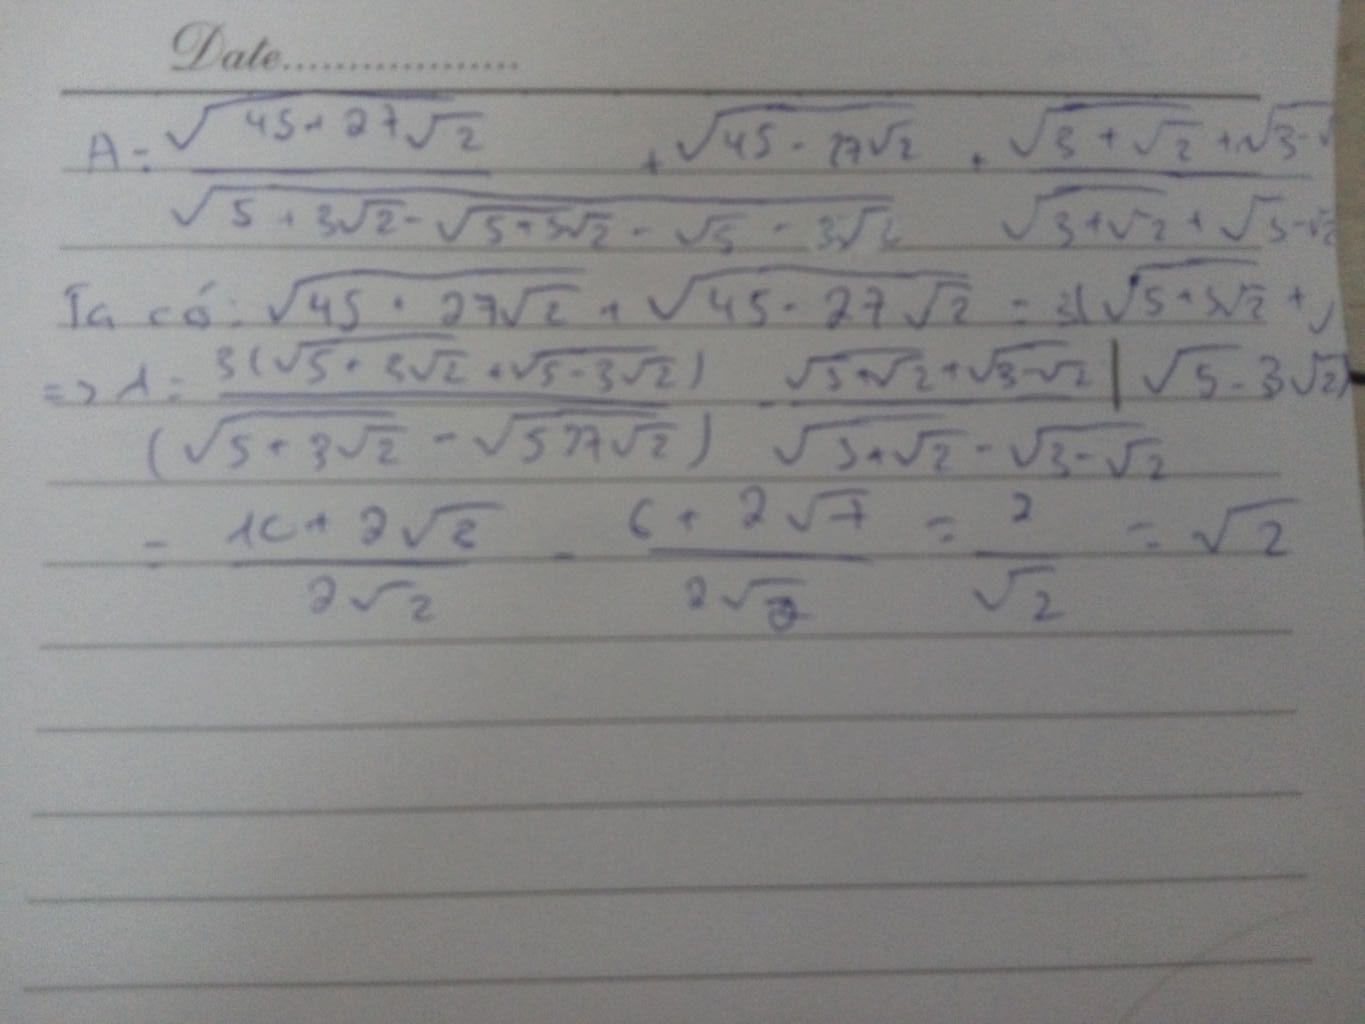 Date..................
A = √(45 + 27√2) + √(45 - 27√2) + √(3 + √2) + √(3 - √
√(5 + 3√2 - √(5 + 3√2) - √5 - 3√2 √(3 + √2) + √(3 - √2
Ta có: √(45 + 27√2) + √(45 - 27√2) = 3(√(5 + 3√2) + √
=> A = 3(√(5 + 3√2) + √(5 - 3√2)) - √(3 + √2) + √(3 - √2) | √5 - 3√2)
(√(5 + 3√2) - √(5 27√2)) √(3 + √2) - √(3 - √2)
= 10 + 2√ - 6 + 2√7 = 2 = √2
2√2 2√2 √2